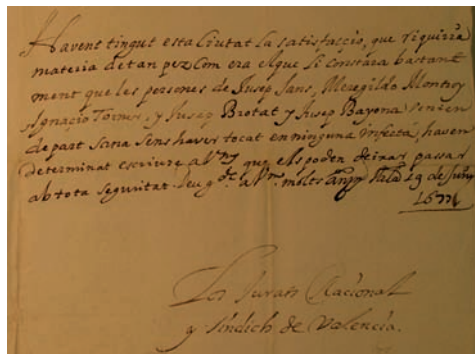 Havent tingut esta Ciutat la satisfaccio, que requiria
materia de tan pez com era el que si constara bastant
ment que les persones de Jusep Sans, Meregildo Monroy
Ignacio Torres, y Jusep Brotat y Jusep Bayona venien
de part sana sens haver tocat en ninguna infecta, havem
determinat escriure a Vm que els poden deixar passar
ab tota seguritat. Deu g.de a Vm. molts anys 19 de Juny
Los Jurats Racional
y Sindich de Valencia.